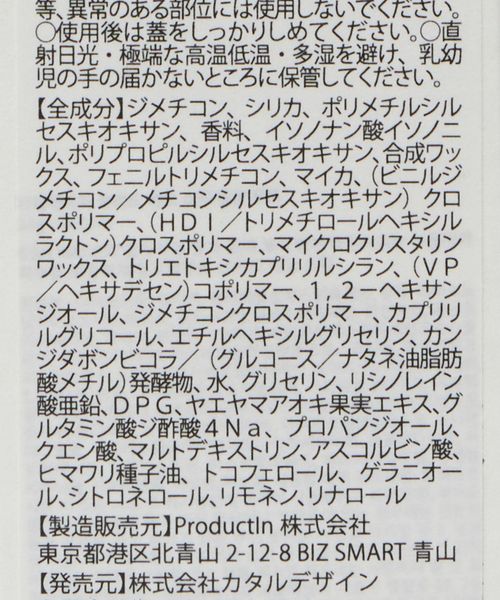 等、異常のある部位には使用しないでください。
○使用後は蓋をしっかりしめてください。○直
射日光・極端な高温低温・多湿を避け、乳幼
児の手の届かないところに保管してください。
【全成分】ジメチコン、シリカ、ポリメチルシル
セスキオキサン、香料、イソノナン酸イソノニ
ル、ポリプロピルシルセスキオキサン、合成ワッ
クス、フェニルトリメチコン、マイカ、（ビニルジ
メチコン／メチコンシルセスキオキサン）クロ
スポリマー、（ＨＤＩ／トリメチロールヘキシル
ラクトン）クロスポリマー、マイクロクリスタリン
ワックス、トリエトキシカプリリルシラン、（ＶＰ
／ヘキサデセン）コポリマー、１，２－ヘキサン
ジオール、ジメチコンクロスポリマー、カプリリ
ルグリコール、エチルヘキシルグリセリン、カン
ジダボンビコラ／（グルコース／ナタネ油脂肪
酸メチル）発酵物、水、グリセリン、リシノレイン
酸亜鉛、ＤＰＧ、ヤエヤマアオキ果実エキス、グ
ルタミン酸ジ酢酸４Ｎａ、プロパンジオール、
クエン酸、マルトデキストリン、アスコルビン酸、
ヒマワリ種子油、トコフェロール、ゲラニオー
ル、シトロネロール、リモネン、リナロール
【製造販売元】ProductIn 株式会社
東京都港区北青山 2-12-8 BIZ SMART 青山
【発売元】株式会社カタルデザイン